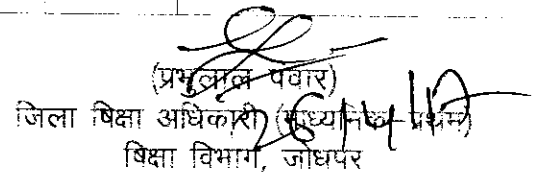 (प्रभुलाल पवार)
जिला षिक्षा अधिकारी (माध्यमिक-प्रथम)
26/4/17
षिक्षा विभाग, जोधपर